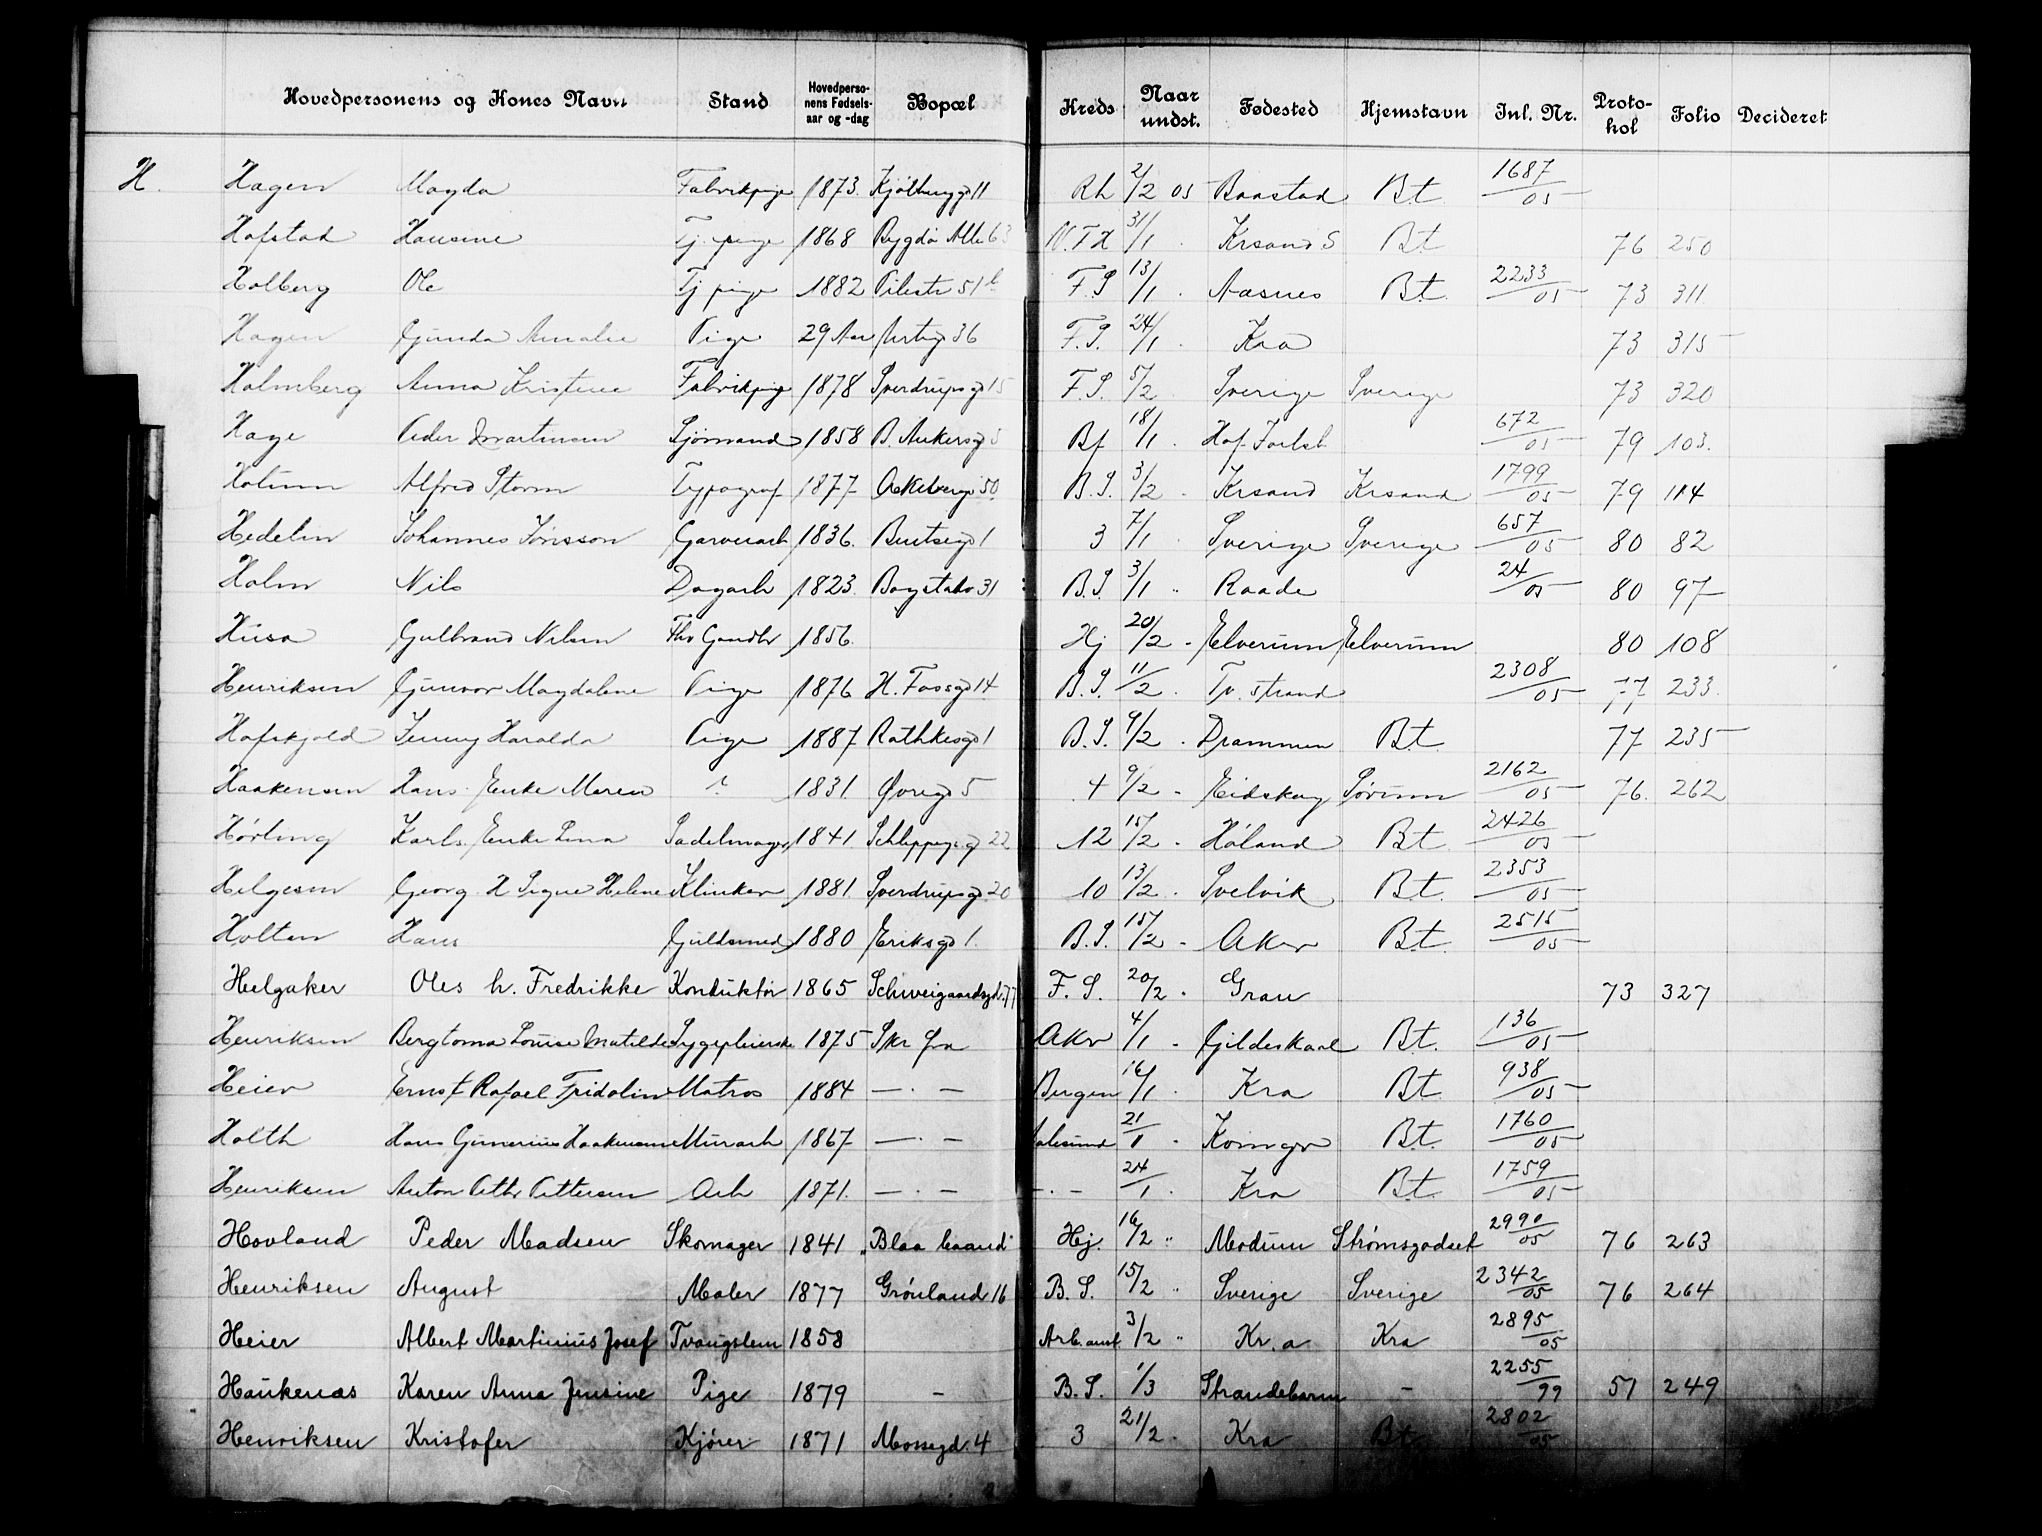 Hovedpersonens og Kones Navn Stand Hovedpersonens Fødselsaar og -dag Bopæl Kreds Naar undst. Fødested Hjemstavn Inl. Nr. Protohol Folio Decideret
H. Hagen Magda Fabrikpige 1873. 11 Rh 2/2 05 Baastad Bt 1687/05
Hafstad Hansine Tj. pige 1868 Bygdø Alle 63 V.T.H 31/1 . Krsand S Bt 76 250
Holberg Ole Tj pige 1882 Pilestr 51 b F.S 13/1 . Aasnes Bt. 2233/05 73 311
Hagen Gunda Amalie Pige 29 Aar 36 F.S. 24/1 . Kra 73 315
Holmberg Anna Kristine Fabrikpige 1878 Sverdrupsgd 15 F.S. 5/2 Sverige Sverige 73 320
Hage Peder Martinsen Sjømand 1858 B. Ankersgd 5 Bf 18/1 . Hof 672/05 79 103.
Holum Alfred Storm Typograf 1877 50 B.S. 3/2 . Krsand Krsand 1799/05 79 114
Hedelin Johannes Jönsson Garverarb 1836. Bentsegd 1 3 7/1 Sverige Sverige 657/05 80 82
Holm Nils Dagarb 1823. Bogstadv 31 B.S. 3/1 " Raade 24/05 80 97
Husa Gulbrand Nilsen Fhv Gaardbr 1856. Hj 20/2 - Elverum Elverum 80 108
Henriksen Gunvor Magdalene Pige 1876 H. Fossgd 14 B.S. 11/2 . Tv. strand 2308/05 77 233.
Hafskjold Jenny Haralda Pige 1887 Rathkesgd 1 B.S. 9/2 . Drammen Bt 77 235
Haakensen Hans. Enke Maren ? 1831. Øvregd 5 4 9/2 - Eidskog Sørum 2162/05 76. 262
Hørling Karls. Enke Lina Sadelmager 1841 Schleppegd 22 12 15/2 . Høland Bt. 2426/05
Helgesen Georg. H Signe Helene Klinker 1881. Sverdrupsgd. 20 10 13/2 . Svelvik Bt. 2353/05
Holten Hans Guldsmed 1880 Eriksgd 1. B.S. 15/2 - Aker Bt. 2515/05
Helgaker Oles h. Fredrikke Konduktør 1865 Schweigaardsgd. 77 F. S. 20/2 . Gran 73 327
Henriksen Bergtoma Louise Matilde Sygepleierske 1875 Skr fra Aker 4/1 - Gildeskaal Bt. 136/05
Heier Ernst Rafael Fridolin Matros 1884 — . — Bergen 16/1 . Kra Bt. 938/05
Holth Hans Gunerius Haakensen Murarb 1867 — . — Aalesund 21/1 . Bt. 1760/05
Henriksen Anton Peter Pettersen Arb 1871. — . — - . - 24/1 . Kra Bt. 1759/05
Hovland Peder Madsen Skomager 1841 „Blaa baand" Hj. 16/2 " Modum Strømsgodset 2990/05 76 263
Henriksen August Maler 1877 Grønland 16 B. S. 15/2 " Sverige Sverige 2342/05 76 264
Heier Albert Martinius Josef Tvangslem 1858 Arb. anst. 3/2 " Kr.a Kra 2895/05
Haukenæs Karen Anna Jensine Pige 1879 - B. S. 1/3 Strandebarm - 2255/99 57 249
Henriksen Kristofer Kjører 1871 Mossegd. 4 3 21/2 . Kra Bt. 2802/05